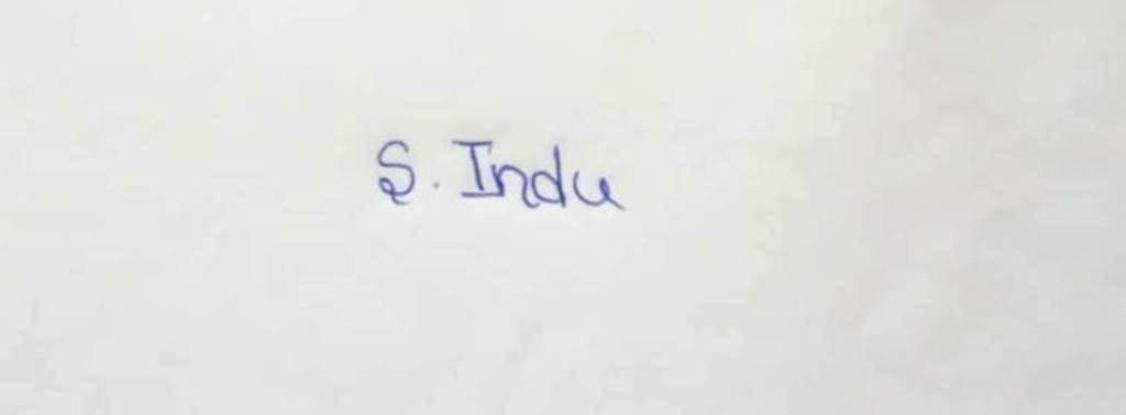 S. Indu